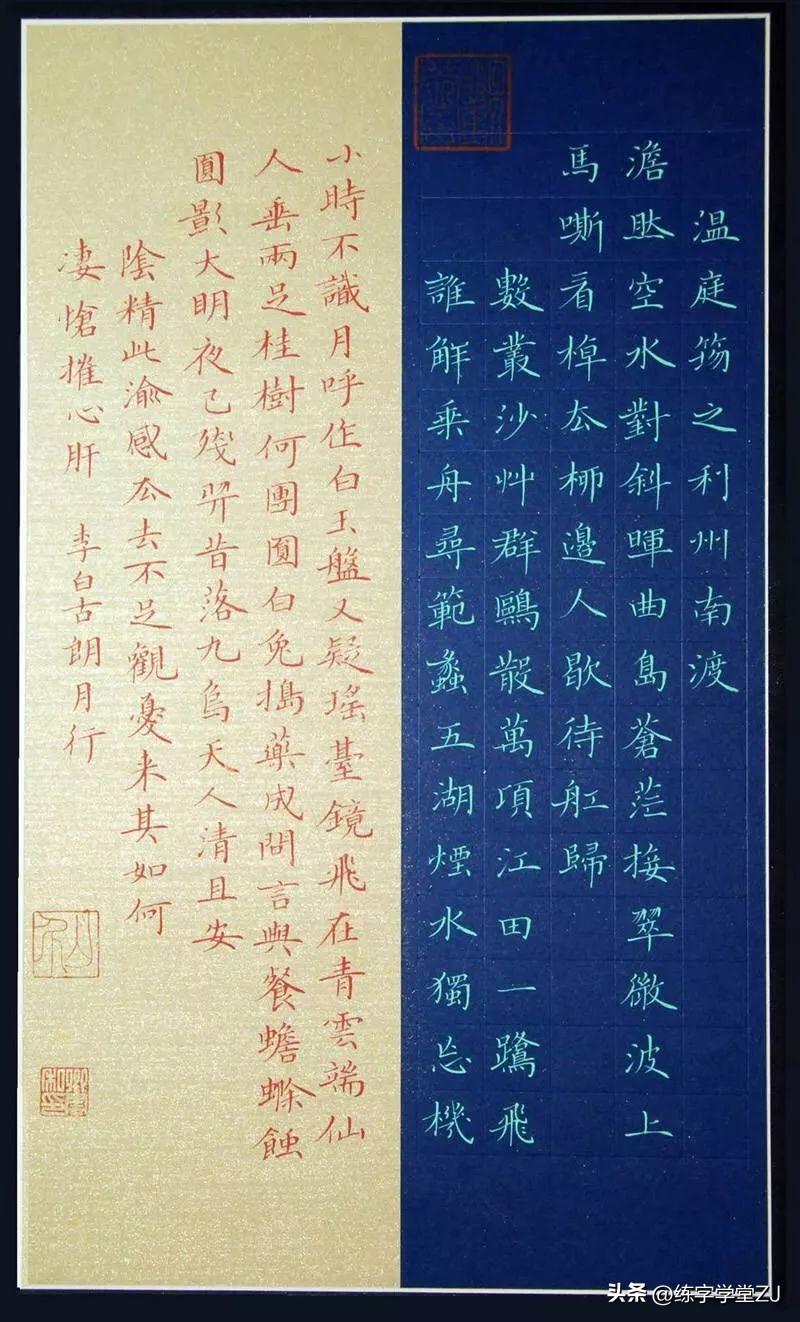 温庭筠之利州南渡
澹然空水對斜暉曲島蒼茫接翠微波上
馬嘶看棹厺桺邊人歇待舡歸
數叢沙艸群鷗散萬頃江田一鷺飛
誰解乘舟尋範蠡五湖煙水獨忘機
小時不識月呼作白玉盤又疑瑤臺鏡飛在青雲端仙
人垂兩足桂樹何團圓白兔搗藥成問言與餐蟾蜍蝕
圓影大明夜已殘羿昔落九烏天人清且安
陰精此渝感厺去不足觀憂来其如何
凄愴摧心肝 李白古朗月行
头条 @练字学堂ZJ